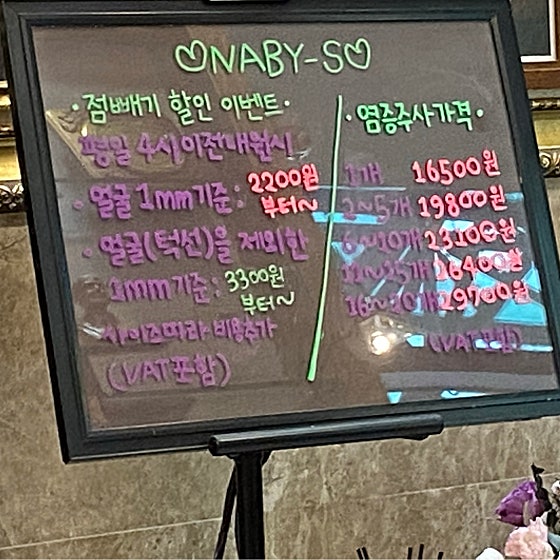 ♡NABY-S♡
·점빼기 할인 이벤트·
평일 4시이전내원시
· 얼굴 1mm기준 : 2200원
부터~
· 얼굴(턱선)을 제외한
1mm기준 : 3300원
부터~
사이즈따라 비용추가
(VAT포함)
· 염증주사가격·
1개 16500원
2~5개 19800원
6~10개 23100원
11~15개 26400원
16~20개 29700원
(VAT포함)